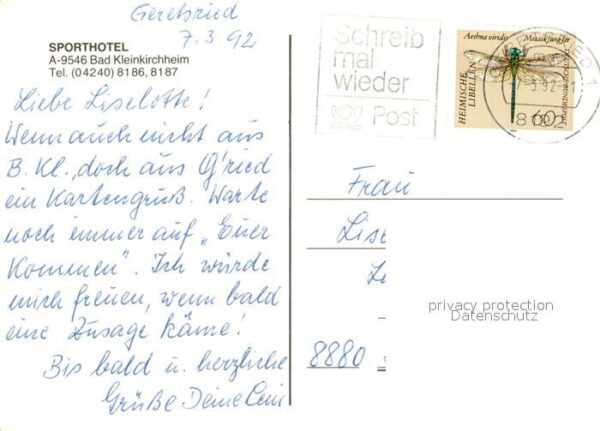 Geretsried
7.3.92
SPORTHOTEL
A-9546 Bad Kleinkirchheim
Tel. (04240) 8186, 8187
Liebe Liselotte!
Wenn auch nicht aus
B. Kl., doch aus G'ried
ein Kartengruß. Warte
noch immer auf „Euer
Kommen". Ich würde
mich freuen, wenn bald
eine Zusage käme!
Bis bald u. herzliche
Grüße Deine
Schreib
mal
wieder
Post
Aeshna viridis Mosaikjungfer
HEIMISCHE
LIBELLEN
DEUTSCHE BUNDESPOST
60
7.3.92
8192
Frau
Lise
privacy protection
Datenschutz
8880